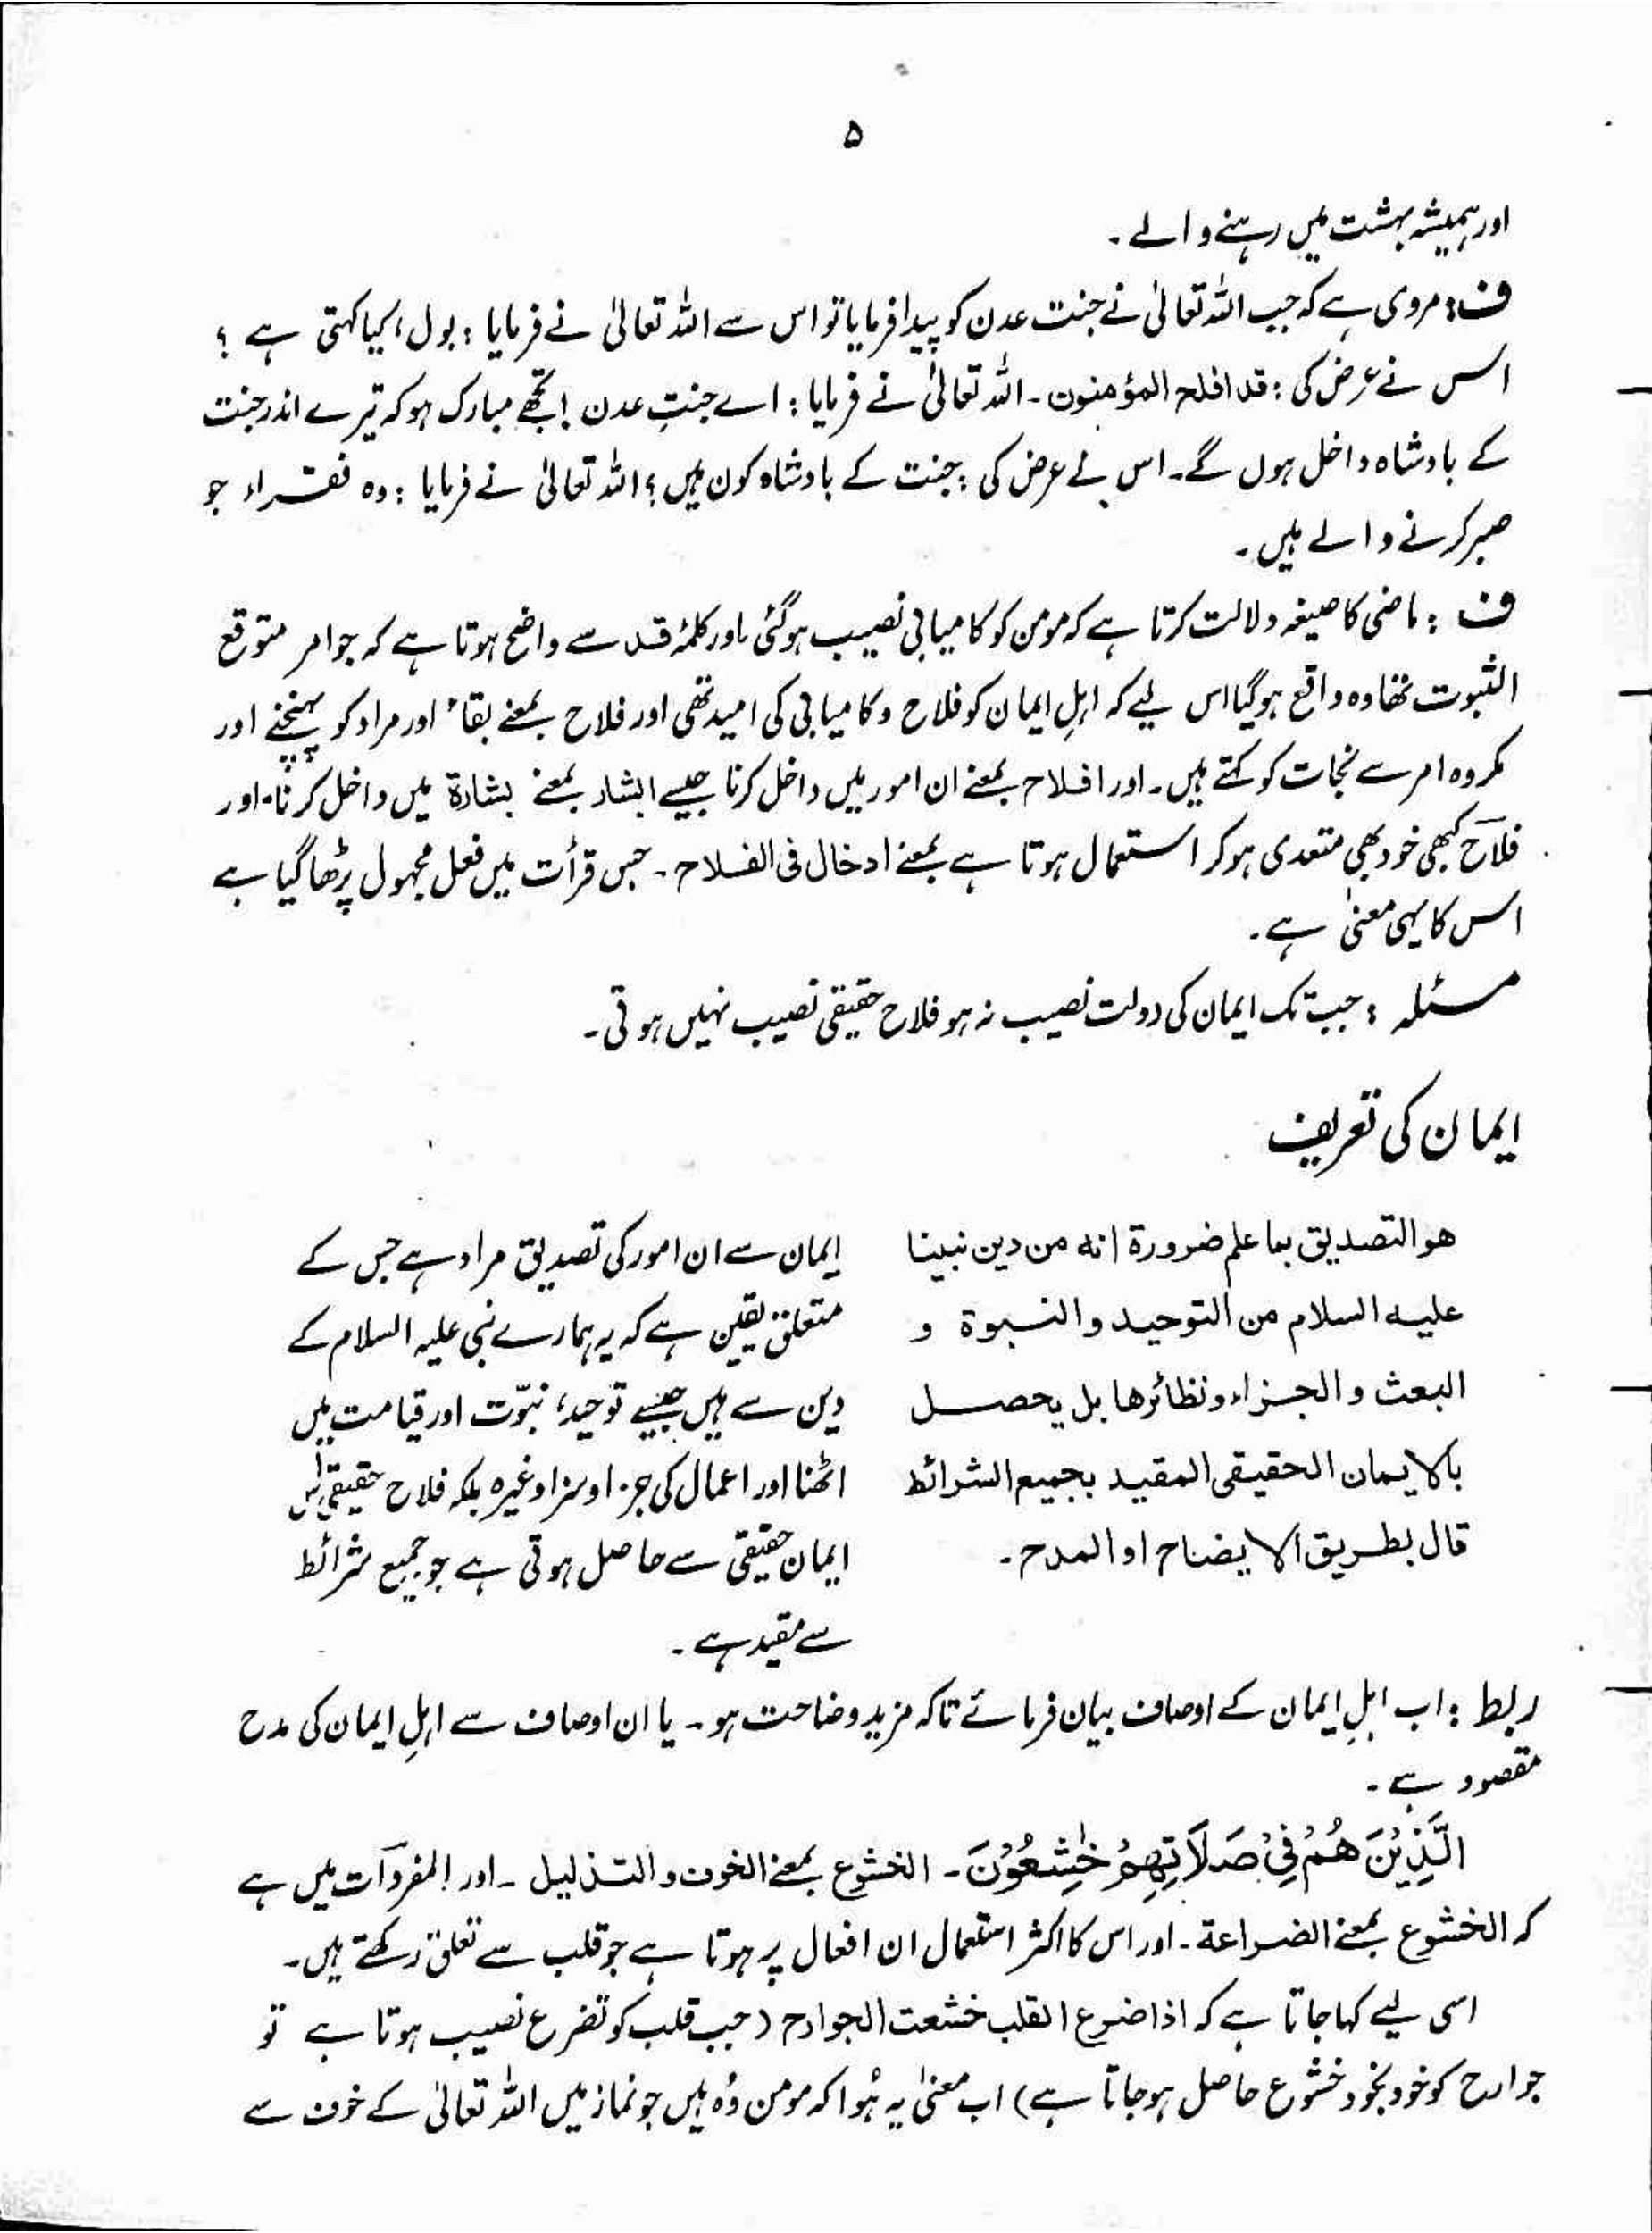 ۵
اور ہمیشہ بہشت میں رہنے والے ۔
ف : مروی ہے کہ جب اللہ تعالیٰ نے جنت عدن کو پیدا فرمایا تو اس سے اللہ تعالیٰ نے فرمایا : بول ، کیا کہتی ہے ؟
اس نے عرض کی : قد افلح المؤمنون ۔ اللہ تعالیٰ نے فرمایا : اے جنتِ عدن ! تجھے مبارک ہو کہ تیرے اندر جنت
کے بادشاہ داخل ہوں گے ۔ اس نے عرض کی : جنت کے بادشاہ کون ہیں ؟ اللہ تعالیٰ نے فرمایا : وہ فقراء جو
صبر کرنے والے ہیں ۔
ف : ماضی کا صیغہ دلالت کرتا ہے کہ مومن کو کامیابی نصیب ہوگئی اور کلمۂ قد سے واضح ہوتا ہے کہ جو امر متوقع
الثبوت تھا وہ واقع ہوگیا اس لیے کہ اہلِ ایمان کو فلاح و کامیابی کی امید تھی اور فلاح بمعنے بقاء اور مراد کو پہنچنے اور
مکروہ امر سے نجات کو کہتے ہیں ۔ اور افلاح بمعنے ان امور میں داخل کرنا جیسے ابشار بمعنے بشارۃ میں داخل کرنا ۔ اور
فلاح کبھی خود بھی متعدی ہوکر استعمال ہوتا ہے بمعنے ادخال فی الفلاح ۔ جس قرأت میں فعل مجہول پڑھا گیا ہے
اس کا یہی معنیٰ ہے ۔
مسئلہ : جب تک ایمان کی دولت نصیب نہ ہو فلاح حقیقی نصیب نہیں ہوتی ۔
ایمان کی تعریف
هو التصديق بما علم ضرورة انه من دين نبينا
عليه السلام من التوحيد والنبوة و
البعث والجزاء ونظائرها بل يحصل
بالايمان الحقيقى المقيد بجميع الشرائط
قال بطريق الايضاح او المدح ۔
ایمان سے ان امور کی تصدیق مراد ہے جس کے
متعلق یقین ہے کہ یہ ہمارے نبی علیہ السلام کے
دین سے ہیں جیسے توحید ، نبوّت اور قیامت میں
اٹھنا اور اعمال کی جزا و سزا وغیرہ بلکہ فلاح حقیقی اس
ایمان حقیقی سے حاصل ہوتی ہے جو جمیع شرائط
سے مقید ہے ۔
ربط : اب اہلِ ایمان کے اوصاف بیان فرمائے تاکہ مزید وضاحت ہو ۔ یا ان اوصاف سے اہلِ ایمان کی مدح
مقصود ہے ۔
الَّذِیْنَ هُمْ فِیْ صَلَاتِهِمْ خٰشِعُوْنَ ۔ الخشوع بمعنے الخوف والتذلیل ۔ اور المفردات میں ہے
کہ الخشوع بمعنے الضراعة ۔ اور اس کا اکثر استعمال ان افعال پر ہوتا ہے جو قلب سے تعلق رکھتے ہیں ۔
اسی لیے کہا جاتا ہے کہ اذا ضرع القلب خشعت الجوارح ( جب قلب کو تضرع نصیب ہوتا ہے تو
جوارح کو خود بخود خشوع حاصل ہوجاتا ہے ) اب معنیٰ یہ ہُوا کہ مومن وُہ ہیں جو نماز میں اللہ تعالیٰ کے خوف سے